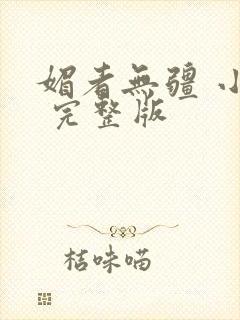 媚者無疆 小
完整版
桔味喵